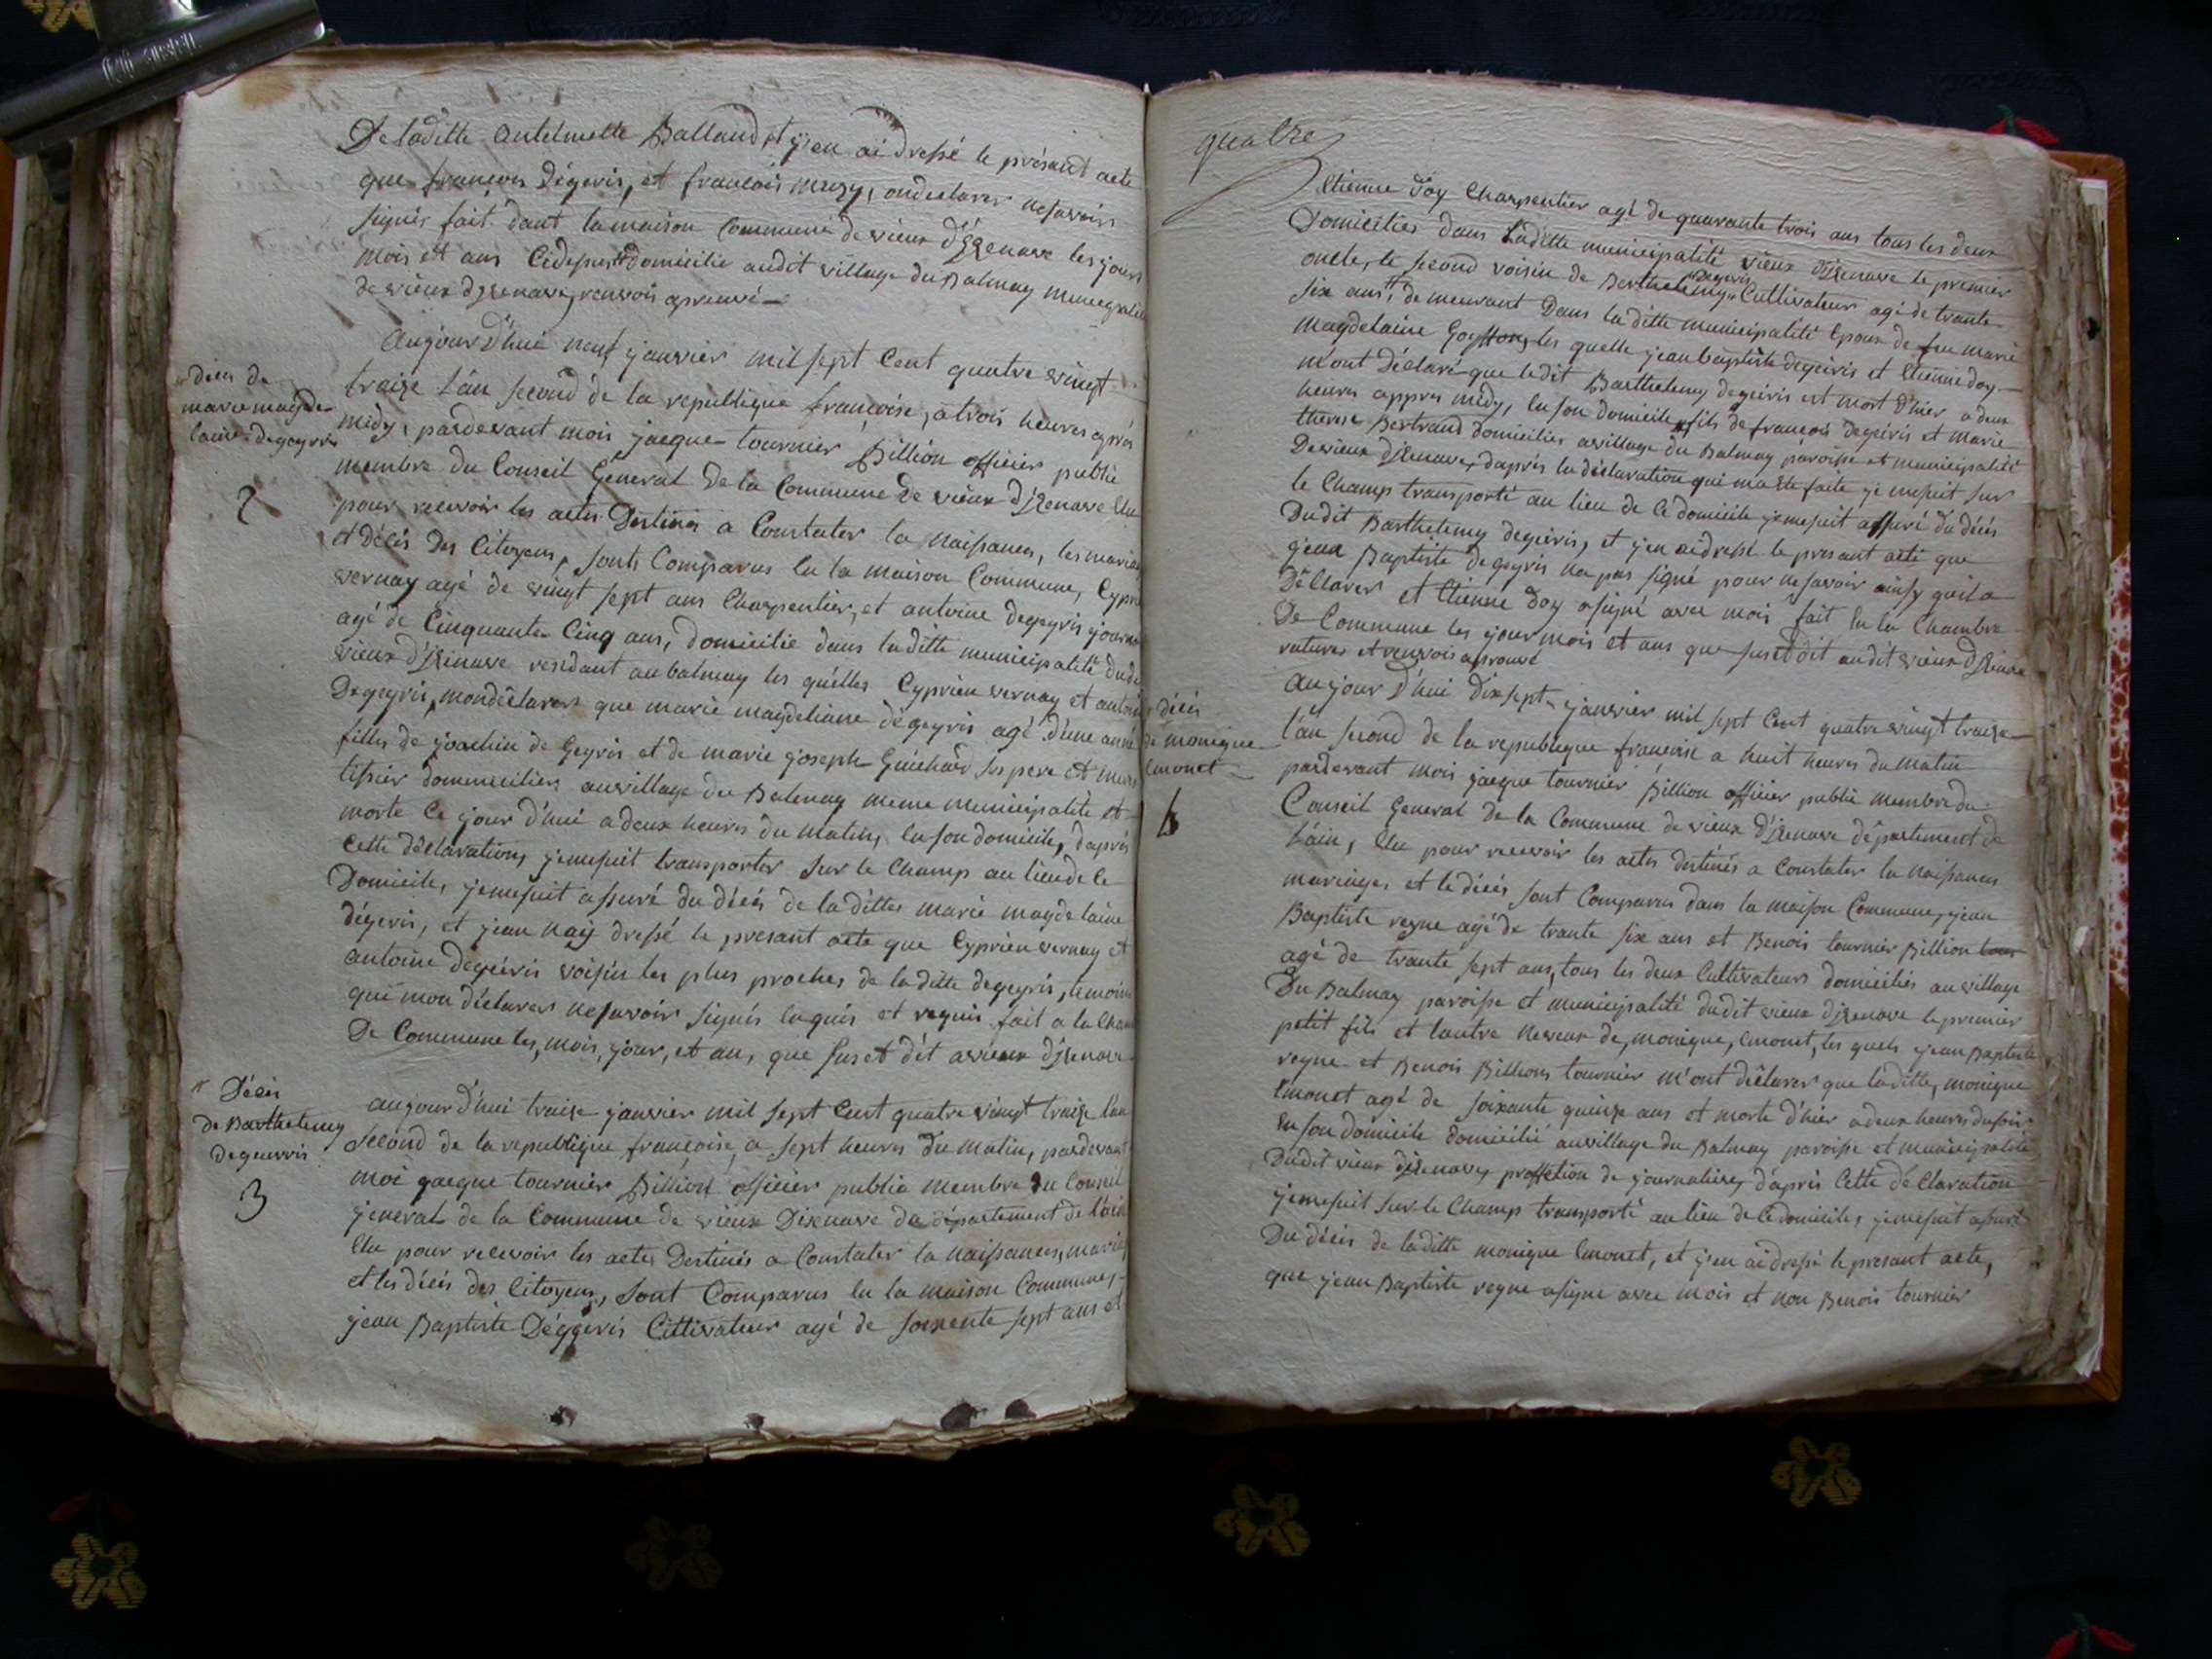 De laditte antelmette Balland et j'en ai dressé le présent acte
que françois Dégeris, et francois mury, ondeclarer nesavoir
signér fait dant la maison Commune de vieux d'Izenave les jour
mois et ans Cidessus domicilie audit village du Balmay municipalité
de vieux dizenave, renvois aprouvé
aujourd'hui neuf janvier mil sept Cent quatre vingt
traize L'an second de la republique françoise, a trois heures après
midy, pardevant mois jacque tournier Billion officier public
membre du Conseil General De la Commune de vieux D'izenave Elu
pour recevoir les actes Destinés a Constater la naissances, les mariag
et décés Des Citoyens, sonts Comparus en la maison Commune, Cyprie
vernay agé de vingt sept ans Charpentier, et antoine degeyris journ
agé de Cinquante Cinq ans, domicilie dans laditte municipalité dud
vieux d'izenave residant au balmay les quélles Cyprien vernay et antoin
Degeyris, mondéclarer que marie magdeliane dégeyris agé d'une anné
filles de joachin de Geyris et de marie joseph Guichard ses pere et mere
tissier dommiciliers auvillage du Balmay meme municipalité et
morte Ce jour d'hui a deux heures du matin, en son domicile, daprés
Cette déclaration, jemesuit transporter sur le Champ au lieu de Ce
Domicile, jemesuit assuré du décés de la ditte marie magdelaine
dégeris, et jean nay dressé le presant acte que Cyprien vernay et
antoine degeiris voisin les plus proches de la ditte degeyris, temoins
qui mon déclarer nesavoir signér enquis et requis fait a la Cham
De Commune les, mois, jour, et an, que sus et dit a vieux d'izenave
décés de
marie magde
laine degeyris
2
Décés
de Barthelemy
degeurris
3
aujourd'hui traize janvier mil sept Cent quatre vingt traize l'an
second de la republique françoise, a sept heures du matin, pardevant
moi jacque tournier Billion officier public membre du Conseil
jeneral de la Commune de vieux Dizenave de departement de l'ain
Elu pour recevoir les actes Destinés a Constater la naissances, mariag
et les décés des Citoyens, sont Comparus en la maison Commune,
jean Baptiste Déggeris Cultivateur agé de soixente sept ans et
quatre
Etienne doy Charpentier agé de quarante trois ans tous les deux
Domicilies dans Laditte municipalité vieux dizenave le premier
oncle, le second voisin de Berthelemy Degeris Cultivateur agé de trante
six ans, demeurant Dans laditte municipalité Epoux de feu marie
magdelaine les quelle jean baptiste degeiris et Etienne doy
mont déclaré que ledit Barthelemy degeiris est mort d'hier a deux
heures appres midy, en son domicile, fils de francois degeiris et marie
therese Bertrand domicilies a village du Balmay paroisse et municipalité
De vieux dizenave, daprés la déclaration qui ma ete faite je mesuit sur
le Champ transporté au lieu de Ce domicile jemesuit assuré du décés
Dudit Barthelemy degeiris, et j'en ai dressé le presant acté que
jean Baptiste degeyris na pas signé pour nesavoir ainsy quil a
Déclarer et Etienne doy a signé avec mois fait en la Chambre
De Commune les jour mois et ans que sus et dit audit vieux D'izenave
ratures et renvois aprouvé
décés
de monique
Emonet
4
Aujour d'hui dixsept janvier mil sept Cent quatre vingt traize
l'an second de la republique francoise a huit heures du matin
pardevant mois jacque tournier Billion officier public membre du
Conseil General de la Commune de vieux d'izenave département de
L'ain, Elu pour recevoir les actes destinés a Constater la naissances
mariages et le décés sont Comparus dans la maison Commune, jean
Baptiste reyne agé de trante six ans et Benois tournier Billion tous
agé de trante sept ans, tous les deux Cultivateurs domiciliés au village
Du Balmay paroisse et municipalité dudit vieux dizenave le premier
petit fils et lautre neveux de, monique, Emonet, les quels jean Baptiste
reyne et Benois Billions tournier m'ont déclarer que laditte, monique
Emonet agé de soixante quinze ans et morte d'hier a deux heures du soir
en son domicile domicilié au village du Balmay paroisse et municipalité
Dudit vieux dizenave, proffetion de journaliere, d'aprés Cette déClaration
jemesuit sur le Champ transporté au lieu de Ce domicile, jemesuit assuré
Du décés de laditte monique Emonet, et j'en ai dressé le presant acte,
que jean Baptiste reyne a signe avec mois et non Benois tournier